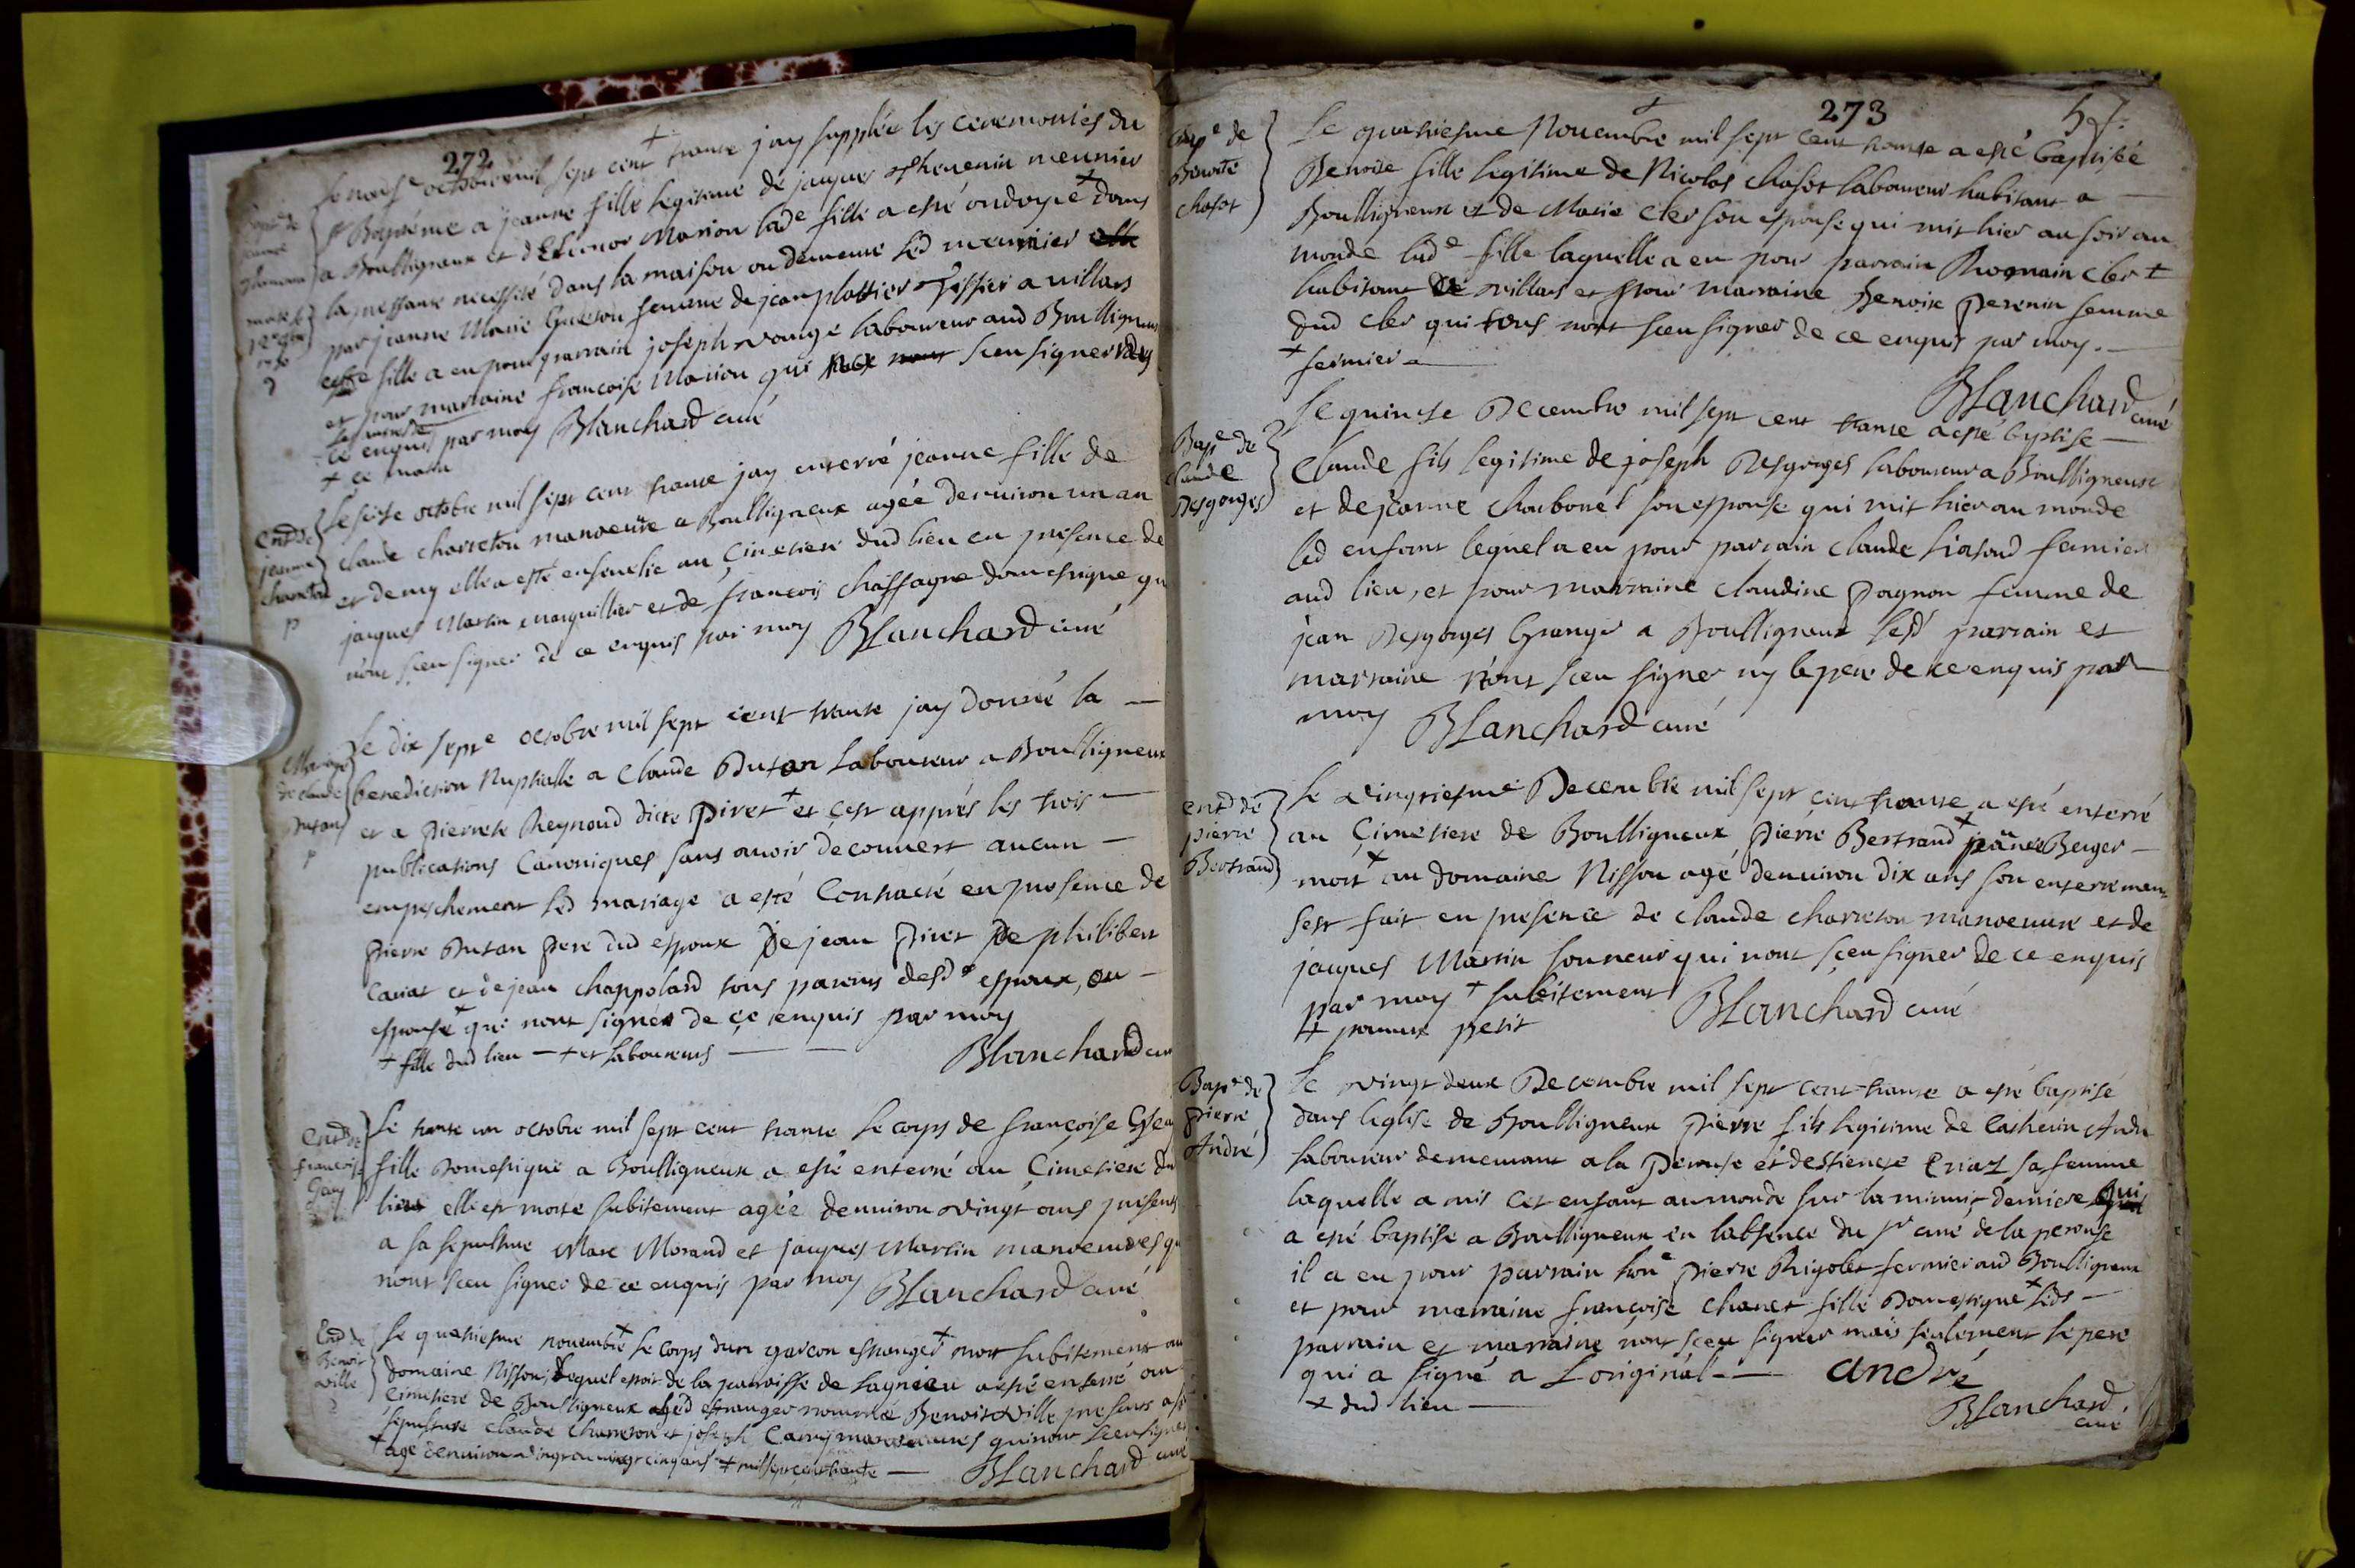 272
Le octobre mil sept cent trante jay supplée les ceremonies du
Bapteme a jeanne fille legitime de jacques Thevenin meunier
a Boulligneux et dEleonor Marion lad^e fille a esté ondoyée + dans
la nessante necessité dans la maison ou demeure led meunier
par jeanne Marie femme de jean plattier Tissier a villars
fille a eu pour parrain joseph vouge laboureur aud Boulligneux
et pour marraine francoise Marion qui sceu signer
ce enquis par moy Blanchard curé
+ ce
Ent^d de
jeanne
charreton
p
Le seise octobre mil sept cent trante jay enterré jeanne fille de
claude charreton manoeuvre a Boulligneux agée denviron un an
et demy elle a esté ensevelie au Cimetiere dud lieu en presence de
jacques Martin marguillier et de francois chassagne domestique qu
nont sceu signer de ce enquis par moy Blanchard curé
Mariage
de claude
Dutan
p
Le dix sept^e octobre mil sept cent trante jay donné la —
benediction Nuptialle a claude Dutan Laboureur a Boulligneux
et a pierrete Reynaud dicte Piret + et cest apprés les trois —
publications Canoniques sans avoir decouvert aucun —
empeschement led mariage a esté Contracté en presence de
pierre Dutan pere dud espoux De jean Piret De philibert
Caniat et de jean chappolard tous parents desd^s espoux, ou —
espouse + qui nont signer de ce enquis par moy
+ fille dud lieu — + et laboureurs —
Blanchard cur
Ent^d de
francoise
Gay
Le trante un octobre mil sept cent trante Le corps de francoise
fille Domestique a Boulligneux a esté enterré au Cimetiere du
lieu elle est morte subitement agée denviron vingt ans presents
a sa sepulture Marc Morand et jacques Martin manoeuvres qu
nont sceu signer de ce enquis par moy Blanchard curé
Ent^d de
Benoit
ville
Le quatriesme novembre + le corps dun garcon estranger + mort subitement au
domaine Nisson, lequel estoit de la parroisse de Lagnieu a esté enterré au
Cimetiere de Boulligneux led estranger nommé Benoist ville presents a sa
sepulture claude charreton et joseph Carry manoeuvres qui nont sceu signer
+ agé denviron vingt ou vingt cinq ans + mil sept cent trante — Blanchard curé
273
57.
Bap^e de
Benoite
chaset
Le quatriesme Novembre mil sept cent trante a esté baptisée
Benoite fille legitime de Nicolas chaset laboureur habitant a —
Boulligneux et de Marie cler son espouse qui mit hier au soir au
monde lad^e fille laquelle a eu pour parrain Romain cler +
habitant de villars et pour marraine Benoite Perenin femme
dud cler qui tous nont sceu signer de ce enquis par moy. —
+ fermier —
Blanchard curé
Bap^e de
claude
Desgorges
Le quinse Decembre mil sept cent trante a esté baptise —
Claude fils legitime de joseph Desgorges laboureur a Boulligneux
et de jeanne charbonel son espouse qui mit hier au monde
led enfant lequel a eu pour parrain claude fermier
aud lieu, et pour marraine claudine Pagnon femme de
jean Desgorges Granger a Boulligneux lesd parrain et
marraine n'ont sceu signer ny le pere de ce enquis par
moy Blanchard curé
ent^d de
pierre
Bertrand
Le vingtiesme Decembre mil sept cent trante a esté enterré
au Cimetiere de Boulligneux Pierre Bertrand + Berger —
mort + au domaine Nisson agé denviron dix ans son enterrement
sest fait en presence de claude charreton manoeuvre et de
jacques Martin sonneur qui nont sceu signer de ce enquis
par moy + subitement Blanchard curé
+ pauvre petit
Bap^e de
Pierre
André
Le vingt deux Decembre mil sept cent trante a esté baptisé
dans leglise de Boulligneux Pierre fils legitime de Catherin André
laboureur demeurant a la Perouse et destienete sa femme
laquelle a mis cet enfant au monde sur la minuit derniere qui
a esté baptise a Boulligneux en labsence du s^r curé de la perouse
il a eu pour parrain hon^e Pierre Rigolet fermier aud Boulligneux
et pour marraine francoise chanet fille Domestique + lesd —
parrain et marraine nont sceu signer mais seulement le pere
qui a signé a Loriginal — andré
+ dud lieu —
Blanchard
curé